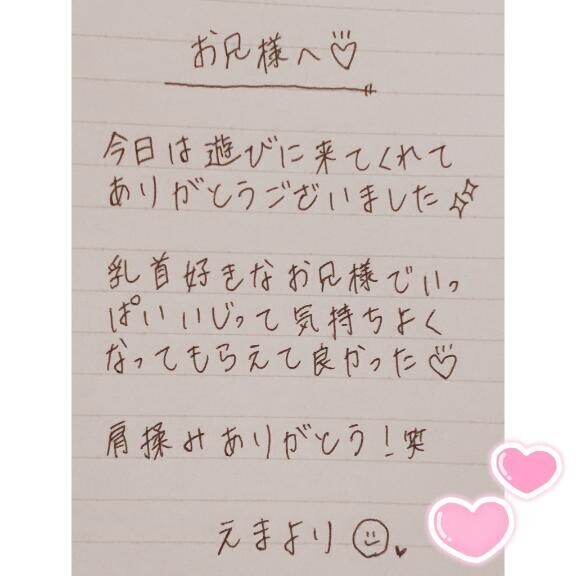 お兄様へ♡
今日は遊びに来てくれて
ありがとうございました✨
乳首好きなお兄様でいっ
ぱいいじって気持ちよく
なってもらえて良かった♡
肩揉みありがとう！笑
えまより